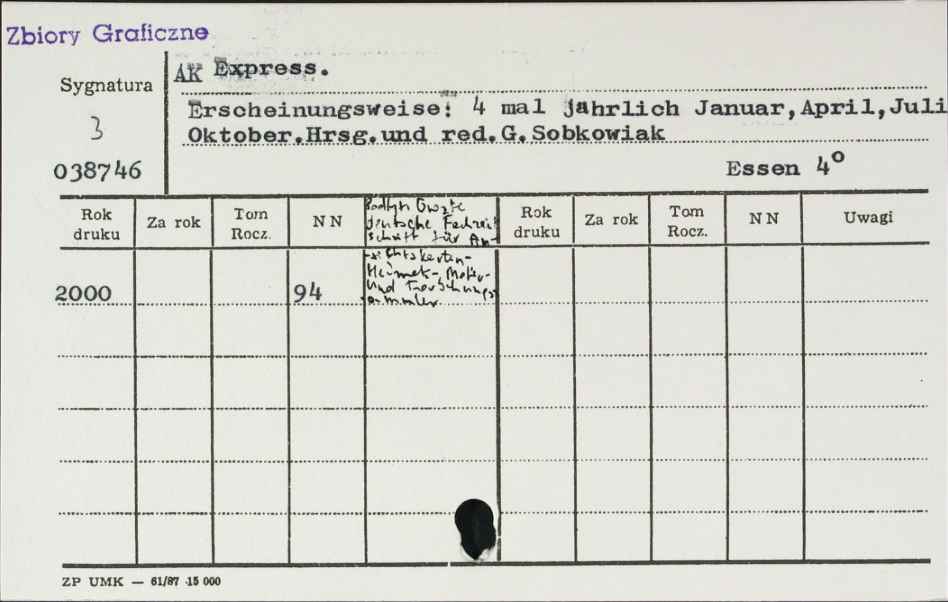 Zbiory Graficzne
Sygnatura
3
038746
AK Express.
Erscheinungsweise: 4 mal jährlich Januar,April,Juli
Oktober.Hrsg.und red.G.Sobkowiak
Essen 4º
Rok druku
Za rok
Tom Rocz.
NN
deutsche
schrift für An-
Rok druku
Za rok
Tom Rocz.
NN
Uwagi
2000
94
sichtskarten-
Heimat-, Motiv-
und Forschungs
sammler.
ZP UMK — 61/87 15 000